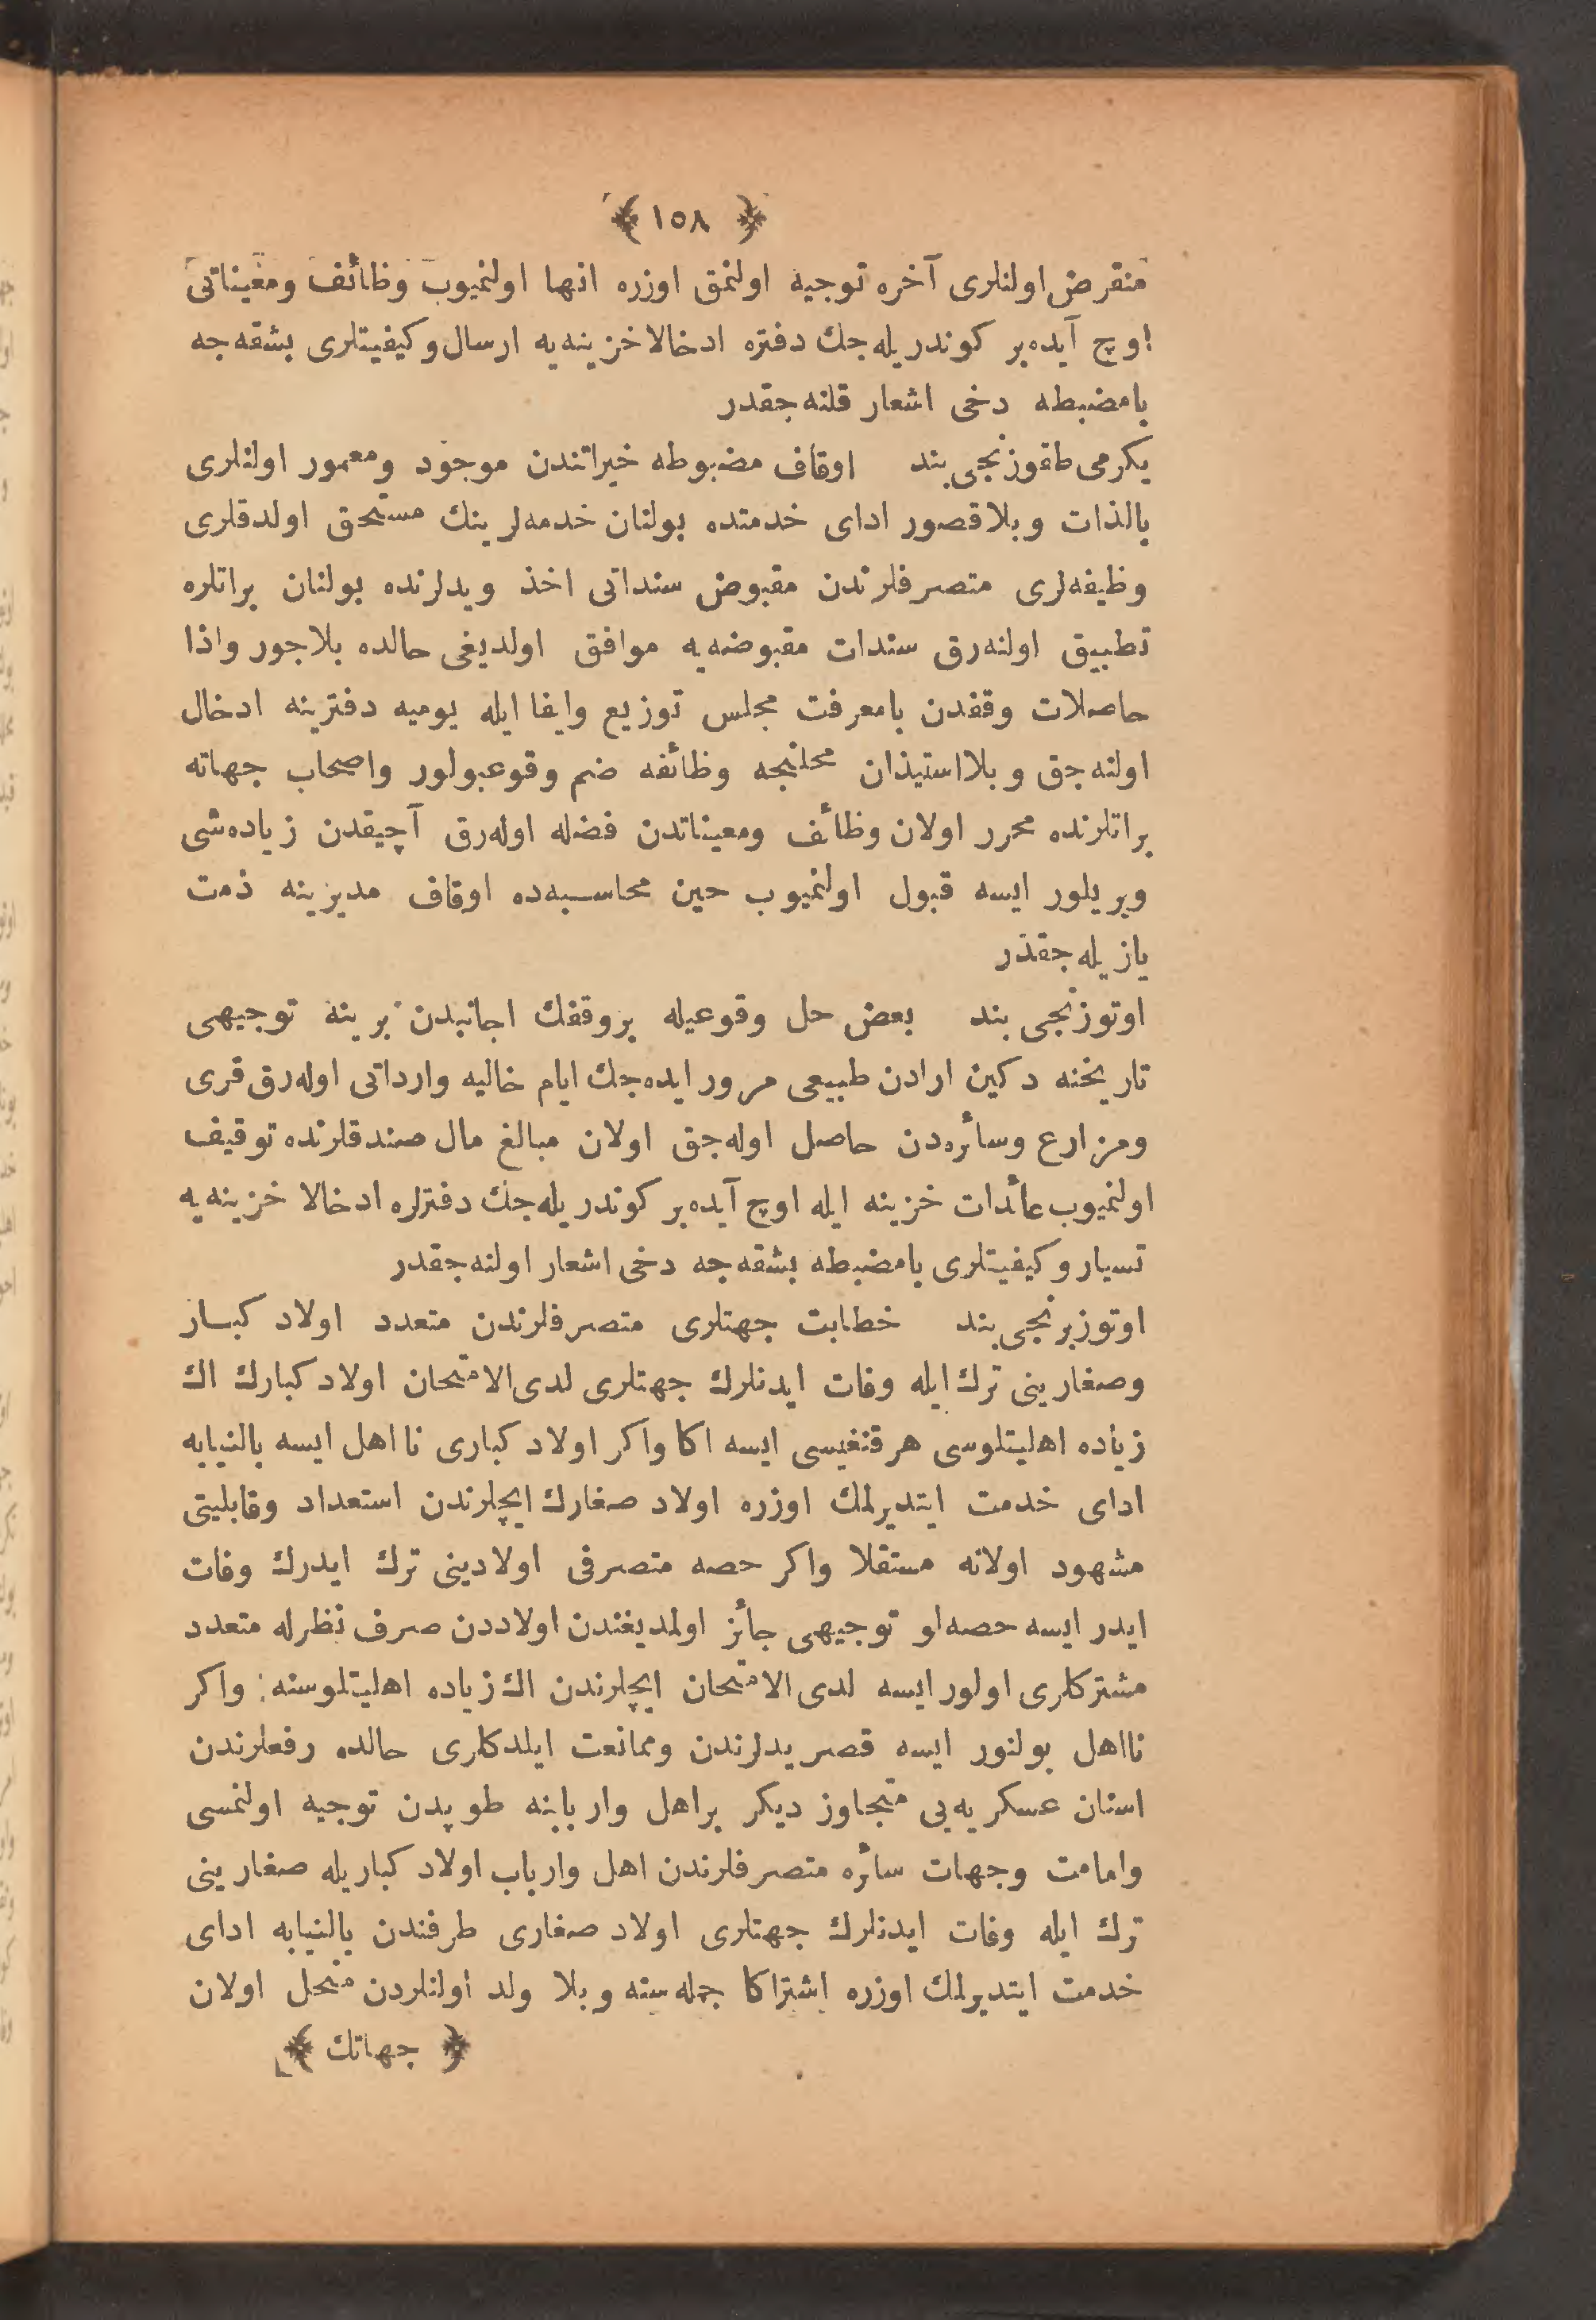 ﴿ ١٥٨ ﴾
منقرض اولنلری آخره توجیه اولنمق اوزره انها اولنمیوب وظائف ومعیناتی
اوچ آیده‌بر کوندریله‌جك دفتره ادخالا خزینه‌یه ارسال وکیفیتلری بشقه‌جه
بامضبطه دخی اشعار قلنه‌جقدر
یکرمی طقوزنجی بند اوقاف مضبوطه خیراتندن موجود ومعمور اولنلری
بالذات وبلاقصور ادای خدمتده بولنان خدمه‌لرینك مستحق اولدقلری
وظیفه‌لری متصرفلرندن مقبوض سنداتی اخذ ویدلرنده بولنان براتلره
تطبیق اولنه‌رق سندات مقبوضه‌یه موافق اولدیغی حالده بلاجور واذا
حاصلات وقفدن بامعرفت مجلس توزیع وایفا ایله یومیه دفترینه ادخال
اولنه‌جق وبلااستیذان محلنجه وظائفه ضم وقوعبولور واصحاب جهاته
براتلرنده محرر اولان وظائف ومعیناتدن فضله اوله‌رق آچیقدن زیاده‌شی
ویریلور ایسه قبول اولنمیوب حین محاسبه‌ده اوقاف مدیرینه ذمت
یازیله‌جقدر
اوتوزنجی بند بعض حل وقوعیله بروقفك اجانبدن برینه توجیهی
تاریخنه دکین ارادن طبیعی مرور ایده‌جك ایام خالیه وارداتی اوله‌رق قری
ومزارع وسائره‌دن حاصل اوله‌جق اولان مبالغ مال صندقلرنده توقیف
اولنمیوب عائدات خزینه ایله اوچ آیده‌بر کوندریله‌جك دفترلره ادخالا خزینه‌یه
تسیار وکیفیتلری بامضبطه بشقه‌جه دخی اشعار اولنه‌جقدر
اوتوزبرنجی بند خطابت جهتلری متصرفلرندن متعدد اولاد کبار
وصغارینی ترك ایله وفات ایدنلرك جهتلری لدی الامتحان اولاد کبارك اك
زیاده اهلیتلوسی هرقنغیسی ایسه اکا واکر اولاد کباری نااهل ایسه بالنیابه
ادای خدمت ایتدیرلمك اوزره اولاد صغارك ایچلرندن استعداد وقابلیتی
مشهود اولانه مستقلا واکر حصه متصرفی اولادینی ترك ایدرك وفات
ایدر ایسه حصه‌لو توجیهی جائز اولمدیغندن اولاددن صرف نظرله متعدد
مشترکلری اولور ایسه لدی الامتحان ایچلرندن اك زیاده اهلیتلوسنه واکر
نااهل بولنور ایسه قصریدلرندن وممانعت ایلدکلری حالده رفعلرندن
اسنان عسکریه‌یی متجاوز دیکر براهل واربابنه طوپدن توجیه اولنمسی
وامامت وجهات سائره متصرفلرندن اهل وارباب اولاد کباریله صغارینی
ترك ایله وفات ایدنلرك جهتلری اولاد صغاری طرفندن بالنیابه ادای
خدمت ایتدیرلمك اوزره اشتراکا جمله‌سنه وبلا ولد اولنلردن منحل اولان
﴿ جهاتك ﴾